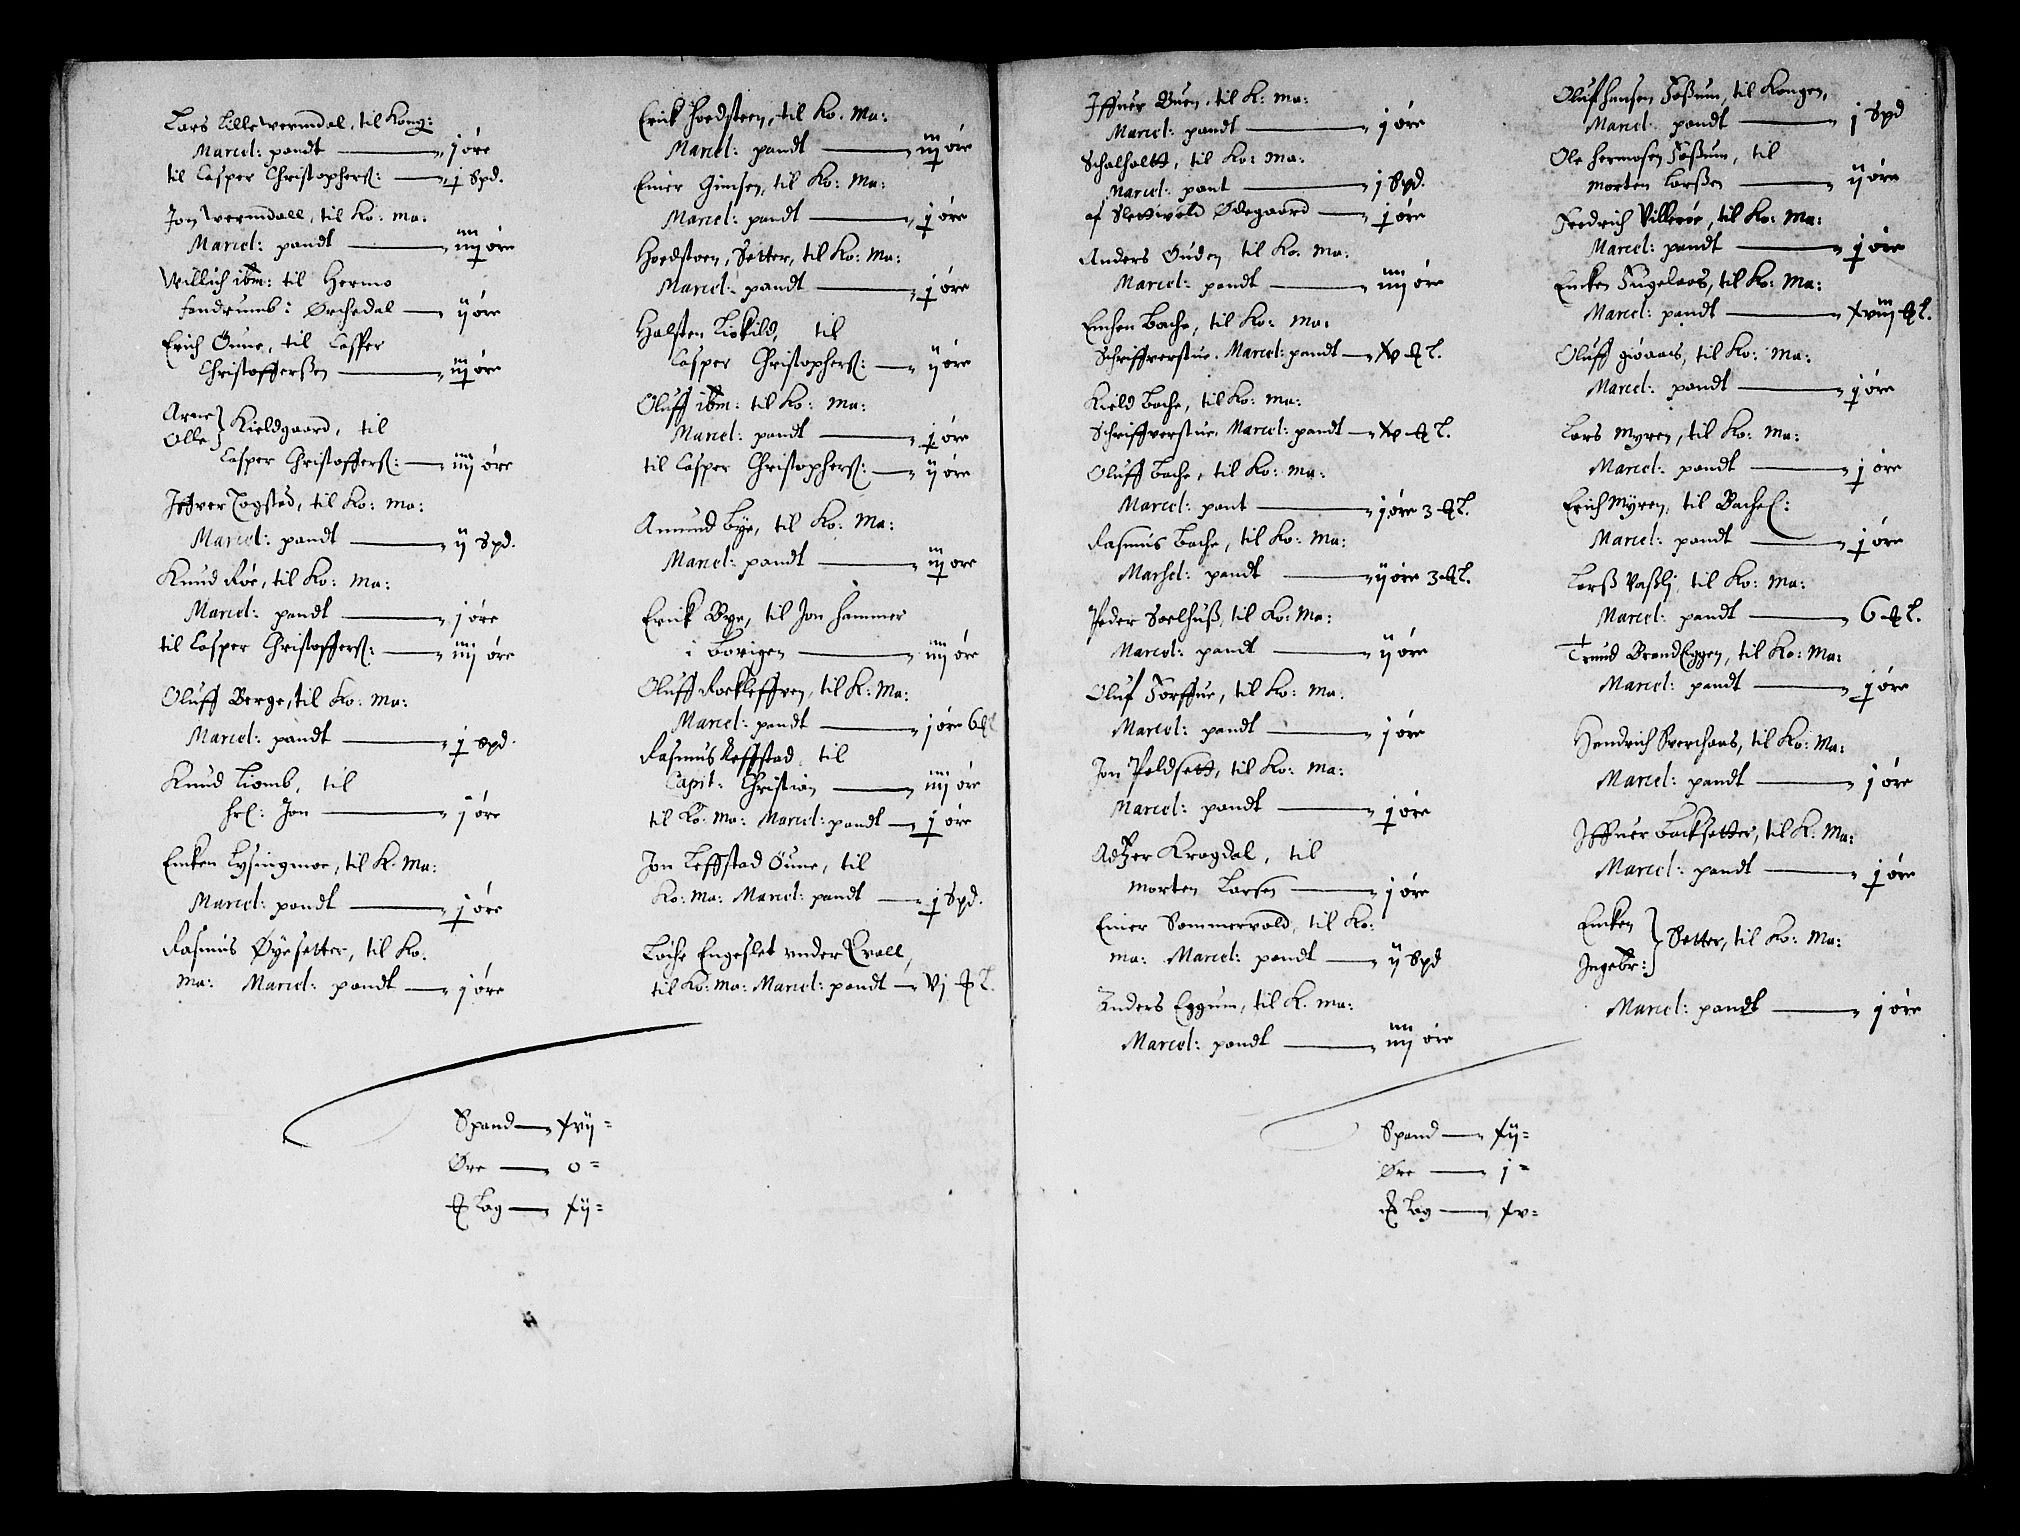 Lars Lille Wermdal, til Kong:
Marcel: pandt — j øre
til Casper Christophers: — j Spd.
Jon Wermdall, til Ko: Ma:
Marcel: pandt — iiij øre
Willich ibm: til Hermo
fandrumb: Orchedal — ij øre
Erich Oune, til Casper
Christofferßen — iij øre
Arne
Olle } Kieldgaard, til
Casper Christoffers: — iiij øre
Jffver Togstad, til Ko: Ma:
Marcel: pandt — ij Spd.
Knud Røe, til Ko: Ma:
Marcel: pandt — j øre
til Casper Christoffers: — iiij øre
Oluff Berge, til Ko: Ma:
Marcel: pandt — j Spd.
Knud Liomb, til
Hr: Jon — j øre
Encken Lysingmoe, til K. Ma:
Marcel: pandt — j øre
Rasmus Øyesetter, til Ko.
Ma: Marcel: pandt — j øre
Erick Hoedsteen, til Ko. Ma:
Marcel: pandt — iij øre
Einer Gimsen, til Ko: Ma:
Marcel: pandt — j øre
Hoedsteen, Setter, til Ko: Ma:
Marcel: pandt — j øre
Halsten Liekild, til
Casper Christophers: — ij øre
Oluff ibm: til Ko: Ma:
Marcel: pandt — j øre
til Casper Christophers: — ij øre
Amund Bye, til Ko: Ma:
Marcel: pandt — iij øre
Erick Bye, til Jon Hammer
i Borigen — iiij øre
Oluff Rockleffven, til K: Ma:
Marcel: pandt — j øre 6
Rasmus Reffstad til
Capit: Christian — iiij øre
til Ko. Ma: Marcel: pandt — j øre
Jon Leffstad Oune, til
Ko: Ma: Marcel: pandt — j Spd.
Løche Engeslet under Qvall,
til Ko: Ma: Marcel: pandt — vj L.
Spand — xvij =
Øre — 0 =
Lag — xij =
Jffuer Buen, til K: Ma:
Marcel: pandt — j øre
Schalholtt, til Ko: Ma:
Marcel: pant — j Spd.
af Slettvold Ødegaard — j øre
Anders Ouden til Ko. Ma:
Marcel: pandt — iiij øre
Enchen Bache, til Ko: Ma:
Schriffverstue. Marcel: pandt — xv L.
Kield Bache, til Ko: Ma:
Schriffverstue. Marcel: pandt — xv L.
Oluff Bache, til Ko: Ma:
Marcel: pant — j øre 3 L.
Rasmus Bache, til Ko: Ma:
Marsel: pandt — ij øre 3 L.
Peder Soelhuß, til Ko: Ma:
Marcel: pandt — ij øre
Oluf Sorffue, til Ko: Ma:
Marcel: pandt — j øre
Jon Poldsett, til Ko: Ma:
Marcel: pandt — j øre
Adtzer Kragdal, til
Morten Larsen — j øre
Einer Sommervold, til Ko:
Ma: Marcel: pandt — ij Spd
Anders Eggum, til K. Ma:
Marcel: pandt — iiij øre
Spand — xij =
Øre — j =
Lag — xv =
Oluf Hansen Foßum, til Kongen,
Marcel: pandt — j Spd
Ole Hermosen Foßum, til
Morten Larßen — ij øre
Fredrich Villeröe, til Ko: Ma:
Marcel: pandt — j øre
Encken Fugelaas, til Ko: Ma:
Marcel: pandt — xviij L.
Oluff Giøaas, til Ko: Ma:
Marcel: pandt — j øre
Lars Myren, til Ko: Ma:
Marcel: pandt — j øre
Erich Myren, til Bachel:
Marcel: pandt — j øre
Larß Vaßlj, til Ko: Ma:
Marcel: pandt — 6 L.
Trund Brend Eggen, til Ko: Ma:
Marcel: pandt — j øre
Hendrich Sverchaas, til Ko: Ma:
Marcel: pandt — j øre
Jffuer Backsetter, til K. Ma:
Marcel: pandt — j øre
Encken
Ingebr: } Setter, til Ko: Ma:
Marcel: pandt — j øre